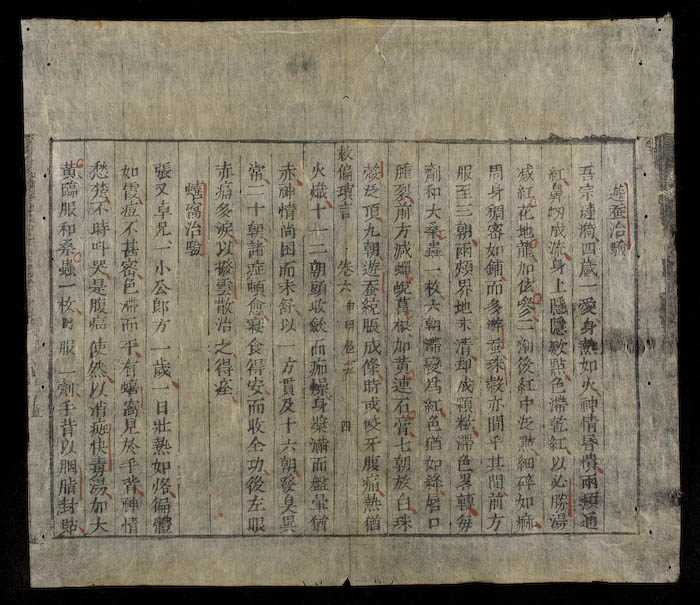 遊蚕治驗
吾宗漣漪四歲一愛身熱如火神情昏憒兩頰通
紅鼻紉成流身上隱隱數點色滯乾紅以必勝湯
減紅花地龍加伭參二劑後紅中泛點細碎如麻
周身稠密如鋪而多游蚕珠殼亦間乎其間前方
服至三朝兩頰界地未清却成顆粒滯色畧轉每
劑和大桑蟲一枚六朝滯變爲紅色猶如絲唇口
腫裂前方減蟬蛻葛根加黃連石膏七朝放白珠
殼泛頂九朝遊蚕統脹成條時或咬牙腹痛熱僧
救偏瑣言 卷六 四
火熾十一二朝頭收斂而痂燥身漿滿而盤暈猶
赤神情尚困而未舒以一方貫及十六朝發臭異
常二十朝諸症頓愈寢食得安而收全功後左眼
赤痛多淚以撥雲散治之得痊
蟢窩治驗
張又卓兄一小公郎方一歲一日壯熱如烙偏體
如霞痘不甚密色帶而平有蟢窩見於手背神情
愁楚不時呌哭是腹痛使然以消斑快毒湯加大
黃臨服和桑蟲一枚服一劑手背以胭脂封貼